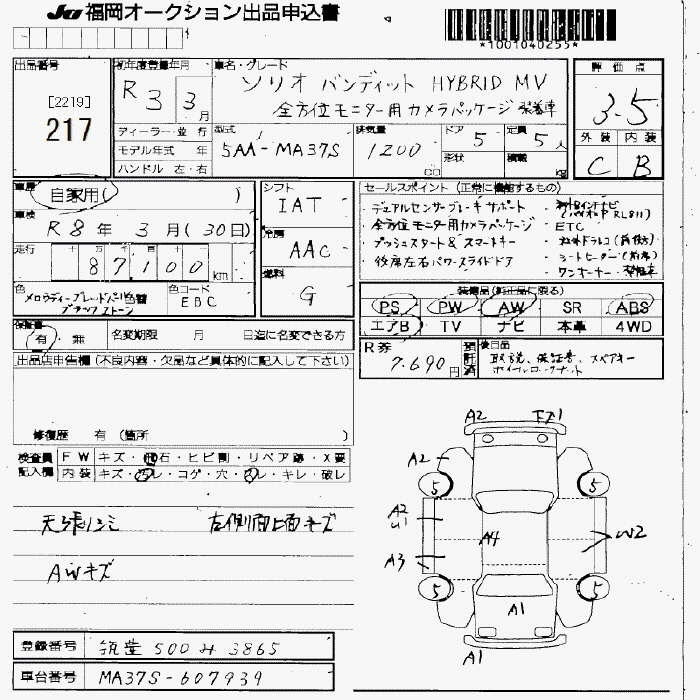 JU 福岡オークション出品申込書
*1001040255*
出品番号
[2219]
217
初年度登録年月
R 3 3 月
車名・グレード
ソリオ バンディット HYBRID MV
全方位モニター用カメラパッケージ 装着車
評価点
3.5
外装 内装
C B
ディーラー・並行
モデル年式 年
ハンドル 左・右
型式
5AA-MA37S
排気量
1200
cc
ドア
5
形状
定員
5人
積載
kg
車歴
自家用( )
車検
R 8 年 3 月 (30日)
走行
十 万 千 百 十
87,100 km
色
メロウディープレッドパール 色替
ブラック 2トーン
色コード
EBC
シフト
IAT
冷房
AAC
燃料
G
セールスポイント (正常に機能するもの)
・デュアルセンサーブレーキサポート
・全方位モニター用カメラパッケージ
・プッシュスタート& スマートキー
・後席左右パワースライドドア
・ETC
・社外ドラレコ
・シートヒーター(前席)
・ワンオーナー
装備品(純正品に限る)
PS PW AW SR ABS
エアB TV ナビ 本革 4WD
保証書
有 無
名変期限 月 日迄に名変できる方
R券
7,690円
預託済
後日品
取説、保証書、スペアキー
ホイールロックナット
出品店申告欄(不良内容・欠品など具体的に記入して下さい)
修復歴 有 (箇所 )
検査員記入欄
FW キズ・飛石・ヒビ割・リペア跡・X要
内装 キズ・汚レ・コゲ・穴・スレ・キレ・破レ
天張リシミ 左側面上面キズ
AWキズ
A2 下ズ1
A2
5 5
A2
U1
A4
W2
A3
5 5
A1
A1
登録番号 筑豊 500 み 3865
車台番号 MA37S-607939